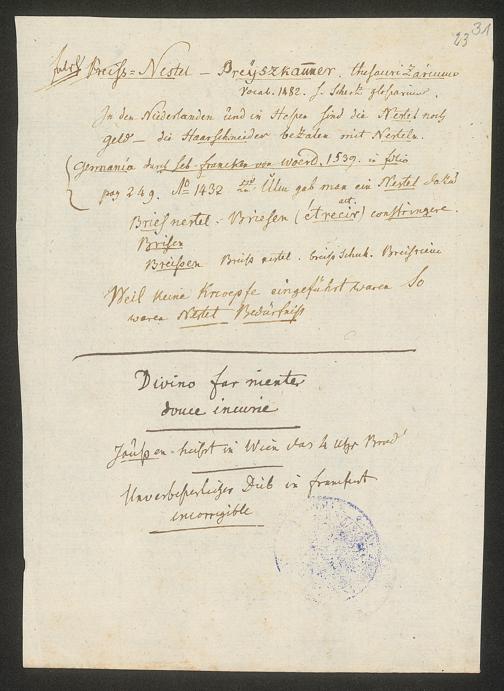 31
23
Preiss=Nestel – Preÿszkam̅er. thesaurizarium
Vocab. 1482. f. Scherz glossarium.
In den Niederlanden und in Hessen sind die Nestel noch
geld – die Haarschneider bezalen mit Nesteln.
Germania durch Seb. francken von Woerd. 1539. in folio
pag 249. Nº 1432 zu Ulm gab man ein Nestel dafür
Briesnestel – Briesen (étrecir) constringere.
act.
Brisen
Breissen Breiss nestel. breiss schuh. Breisriemen
Weil keine Knoepfe eingeführt waren So
waren Nestel Bedürfniss
Divino far niente
douce incurie
Jaußen – heißt in Wien das 4 Uhr Brod
Unverbesserlicher Dieb in francfurt
incorrigible